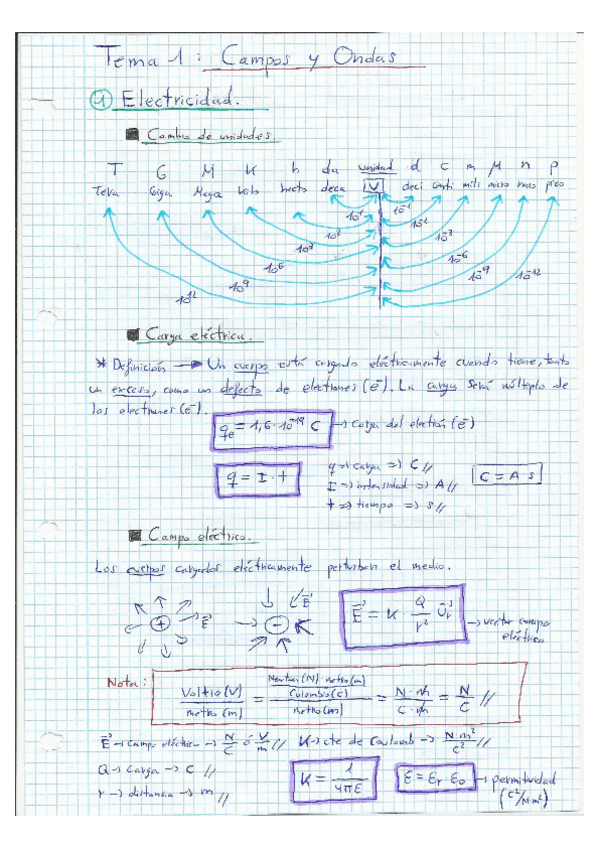 Tema 1: Campos y Ondas
1 Electricidad.
Cambio de unidades
T G M K h da unidad d c m μ n p
Tera Giga Mega Kilo hecto deca 1V deci centi mili micro nano pico
10¹ 10⁻¹
10² 10⁻²
10³ 10⁻³
10⁶ 10⁻⁶
10⁹ 10⁻⁹
10¹² 10⁻¹²
Carga eléctrica.
* Definición → Un cuerpo está cargado eléctricamente cuando tiene, tanto
un exceso, como un defecto de electrones (e⁻). La carga será múltiplo de
los electrones (e⁻).
qe = 1,6·10⁻¹⁹ C → carga del electrón (e⁻)
q = I · t
q => carga => C //
I => intensidad => A //
t => tiempo => s //
C = A s
Campo eléctrico.
Los cuerpos cargados eléctricamente perturban el medio.
+ E⃗ - E⃗
E⃗ = K · Q/r² U⃗r → vector campo
eléctrico
Nota: Voltio (V)/metro (m) = (Newton (N) · metro (m)/Culombio (C))/metro (m) = N·m/C·m = N/C //
E⃗ → campo eléctrico → N/C ó V/m // K → cte de Coulomb → N·m²/C² //
Q → Carga → C //
r → distancia → m //
K = 1/4πε
ε = εr ε0 → permitividad
(C²/N·m²)